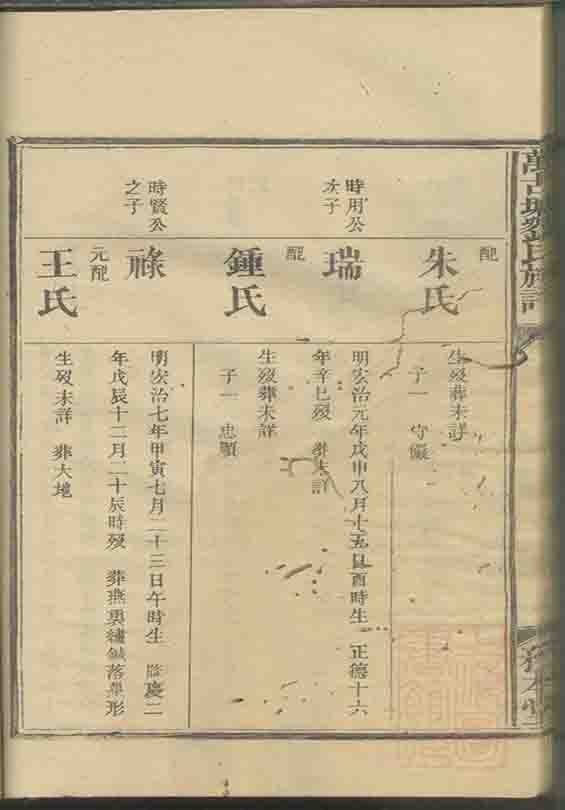 氏族譜
配
朱氏
生歿葬未詳
子一 守儼
時用公
次子
瑞
明宏治元年戊申八月十五日酉時生 正德十六
年辛巳歿 葬未詳
配
鍾氏
生歿葬未詳
子一 忠順
時賢公
之子
祿
明宏治七年甲寅七月二十三日午時生 隆慶二
年戊辰十二月二十辰時歿 葬燕 繡鍼落 形
元配
王氏
生歿未詳 葬大地